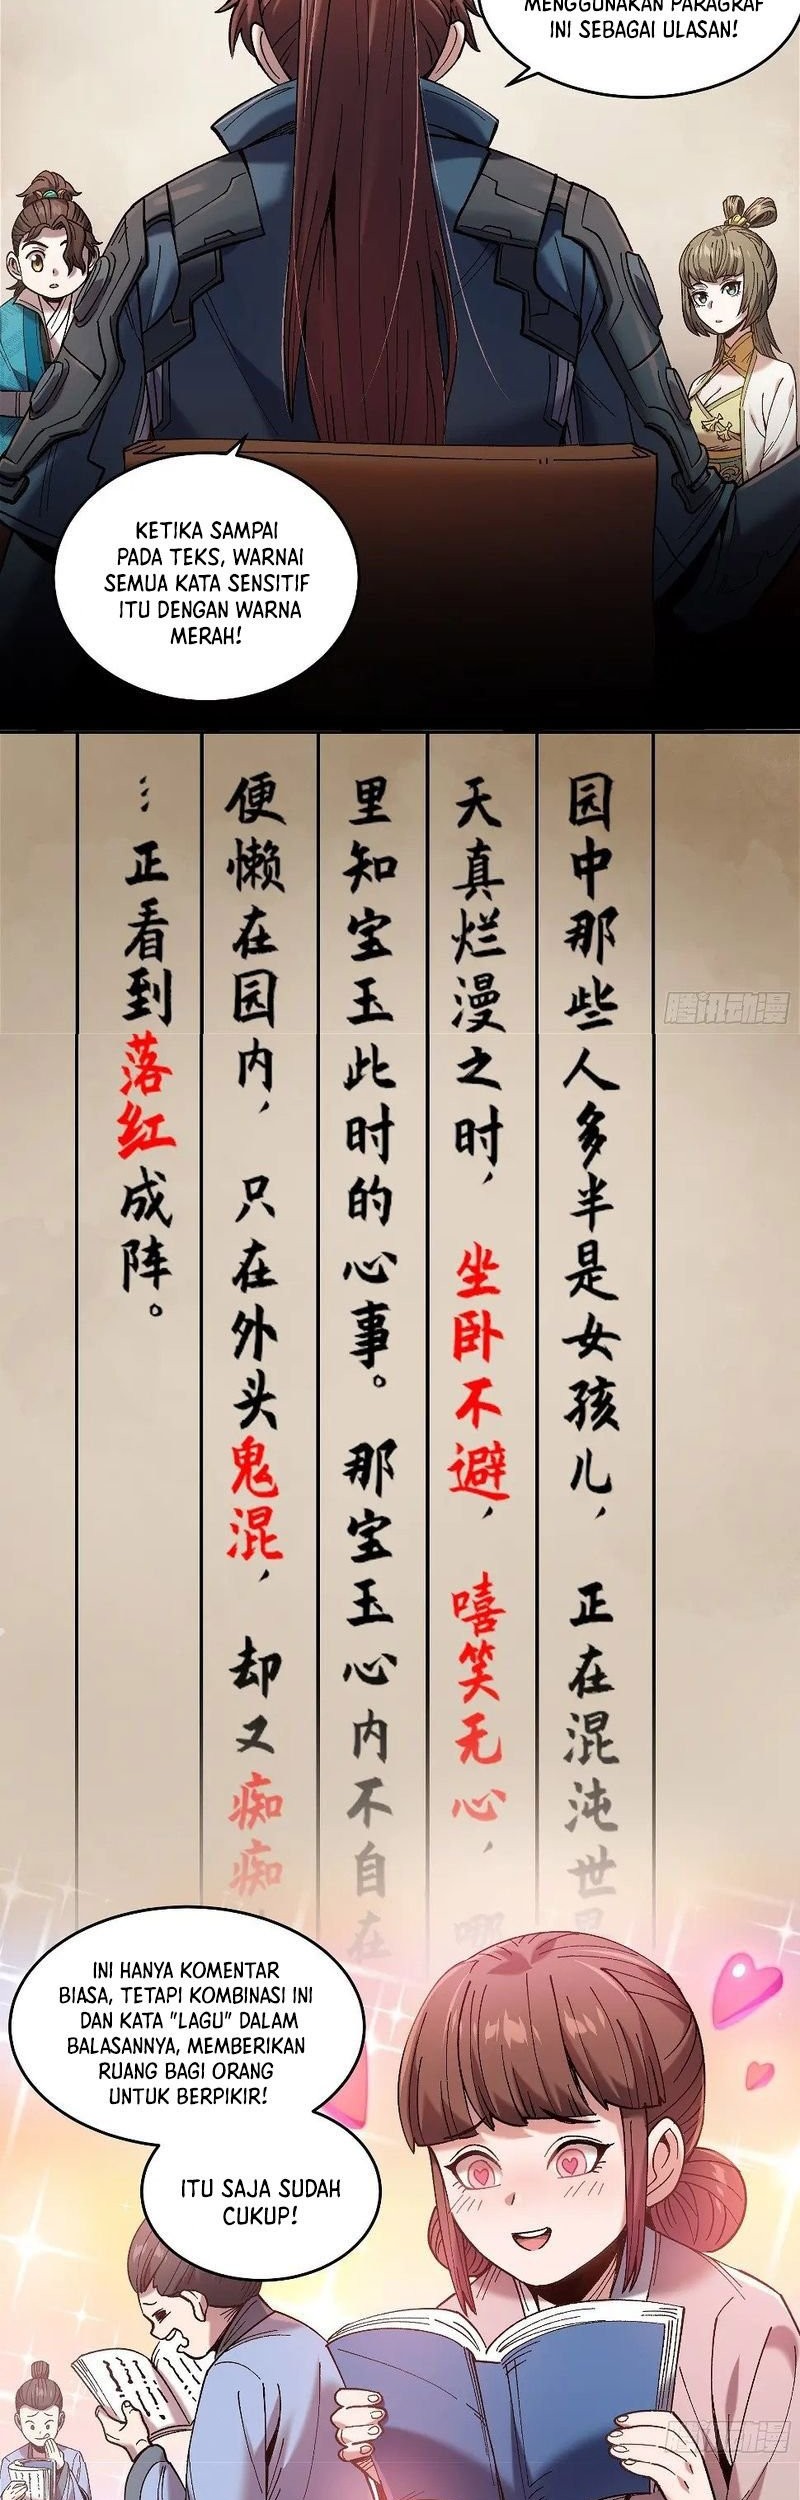 MENGGUNAKAN PARAGRAF
INI SEBAGAI ULASAN!
KETIKA SAMPAI
PADA TEKS, WARNAI
SEMUA KATA SENSITIF
ITU DENGAN WARNA
MERAH!
园中那些人多半是女孩儿，正在混沌世
天真烂漫之时，坐卧不避，嘻笑无心，哪
里知宝玉此时的心事。那宝玉心内不自在
便懒在园内，只在外头鬼混，却又痴痴
…正看到落红成阵。
腾讯动漫
INI HANYA KOMENTAR
BIASA, TETAPI KOMBINASI INI
DAN KATA "LAGU" DALAM
BALASANNYA, MEMBERIKAN
RUANG BAGI ORANG
UNTUK BERPIKIR!
ITU SAJA SUDAH
CUKUP!
腾讯动漫